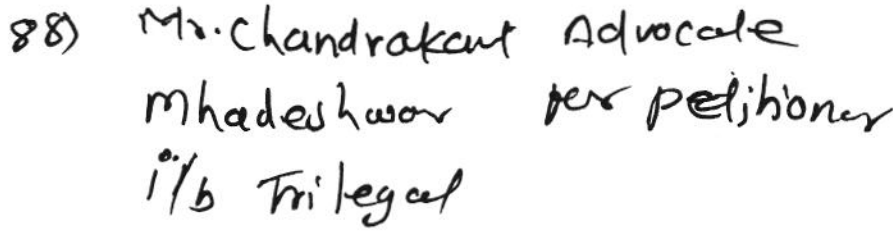 88) Mr. Chandrakant Advocate
Mhadeshwar for petitioner
i/b Trilegal